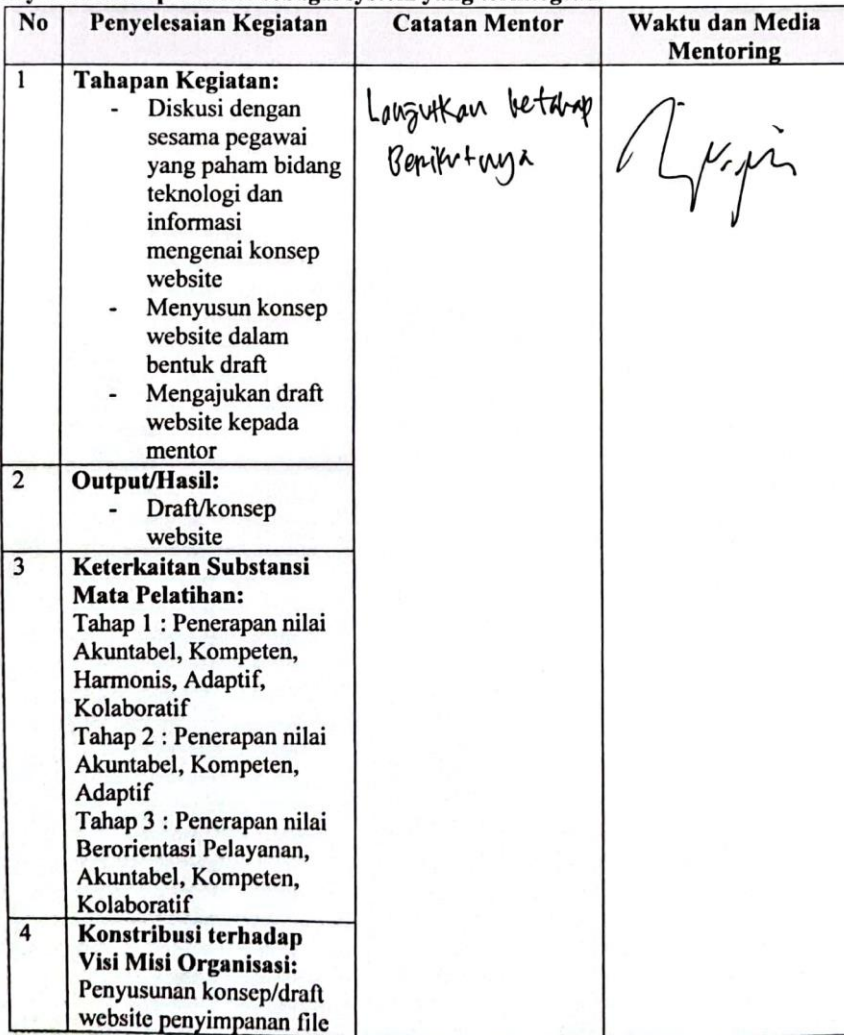 No
Penyelesaian Kegiatan
Catatan Mentor
Waktu dan Media
Mentoring
1
Tahapan Kegiatan:
- Diskusi dengan
sesama pegawai
yang paham bidang
teknologi dan
informasi
mengenai konsep
website
- Menyusun konsep
website dalam
bentuk draft
- Mengajukan draft
website kepada
mentor
Lanjutkan ketahap
Berikutnya
2
Output/Hasil:
- Draft/konsep
website
3
Keterkaitan Substansi
Mata Pelatihan:
Tahap 1 : Penerapan nilai
Akuntabel, Kompeten,
Harmonis, Adaptif,
Kolaboratif
Tahap 2 : Penerapan nilai
Akuntabel, Kompeten,
Adaptif
Tahap 3 : Penerapan nilai
Berorientasi Pelayanan,
Akuntabel, Kompeten,
Kolaboratif
4
Konstribusi terhadap
Visi Misi Organisasi:
Penyusunan konsep/draft
website penyimpanan file